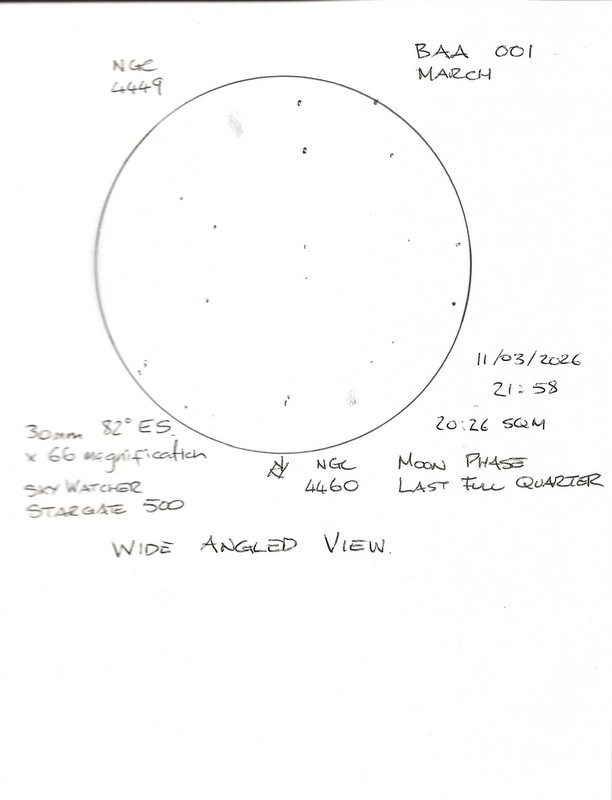 BAA 001
MARCH
NGC
4449
11/03/2026
21:58
20:26 SQM
30mm 82° ES
x 66 magnification
SKY WATCHER
STARGATE 500
N
NGC
4460
MOON PHASE
LAST FULL QUARTER
WIDE ANGLED VIEW.